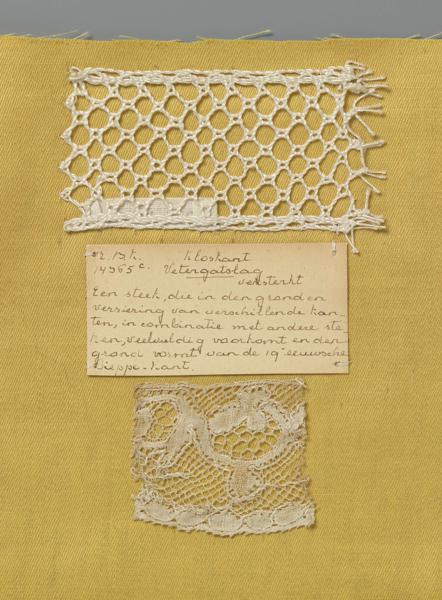 Kloskant
14965 c. Vetergatslag
versterkt
Een steek, die in den grond en
versiering van verschillende kan-
ten, in combinatie met andere ste
ken, veelvuldig voorkomt en den
grond vormt van de 19e eeuwsche
Dieppe-kant.